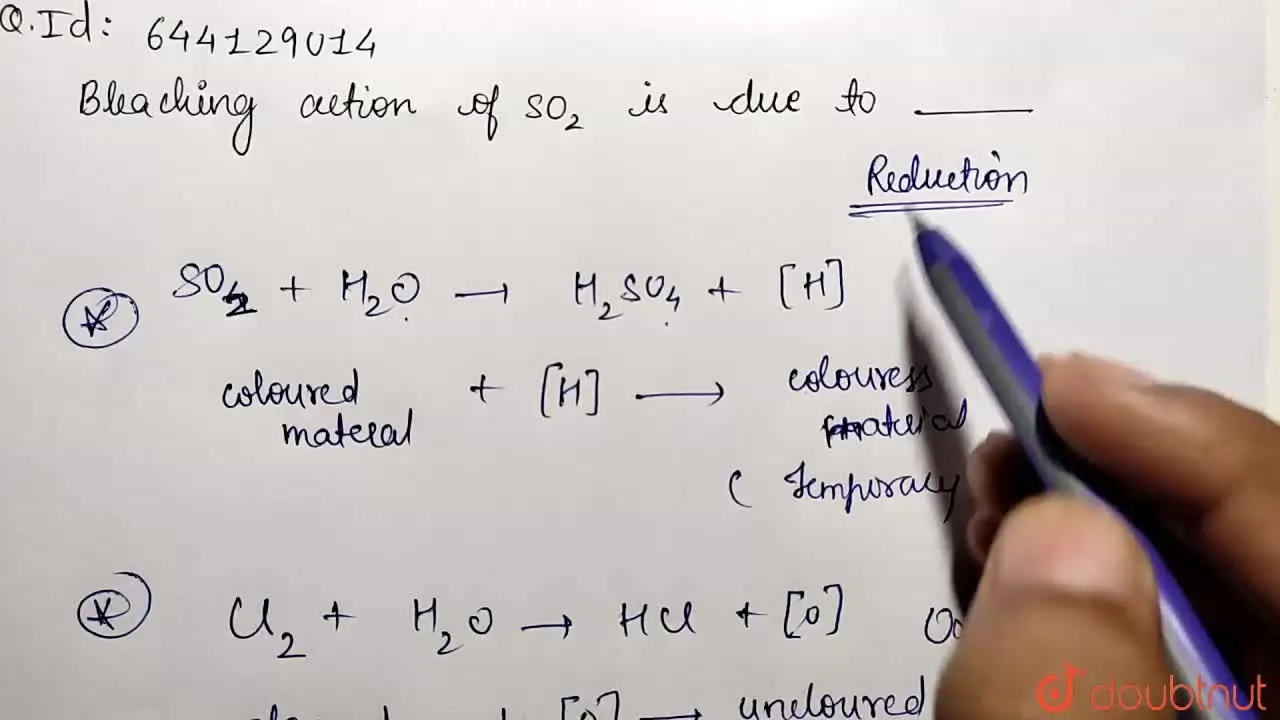 Q.Id: 644129014
Bleaching action of SO2 is due to ____
Reduction
SO2 + H2O → H2SO4 + [H]
coloured + [H] → colouress
materal material
( Temporary
Cl2 + H2O → HCl + [O]
+ [O] → uncloured
doubtnut